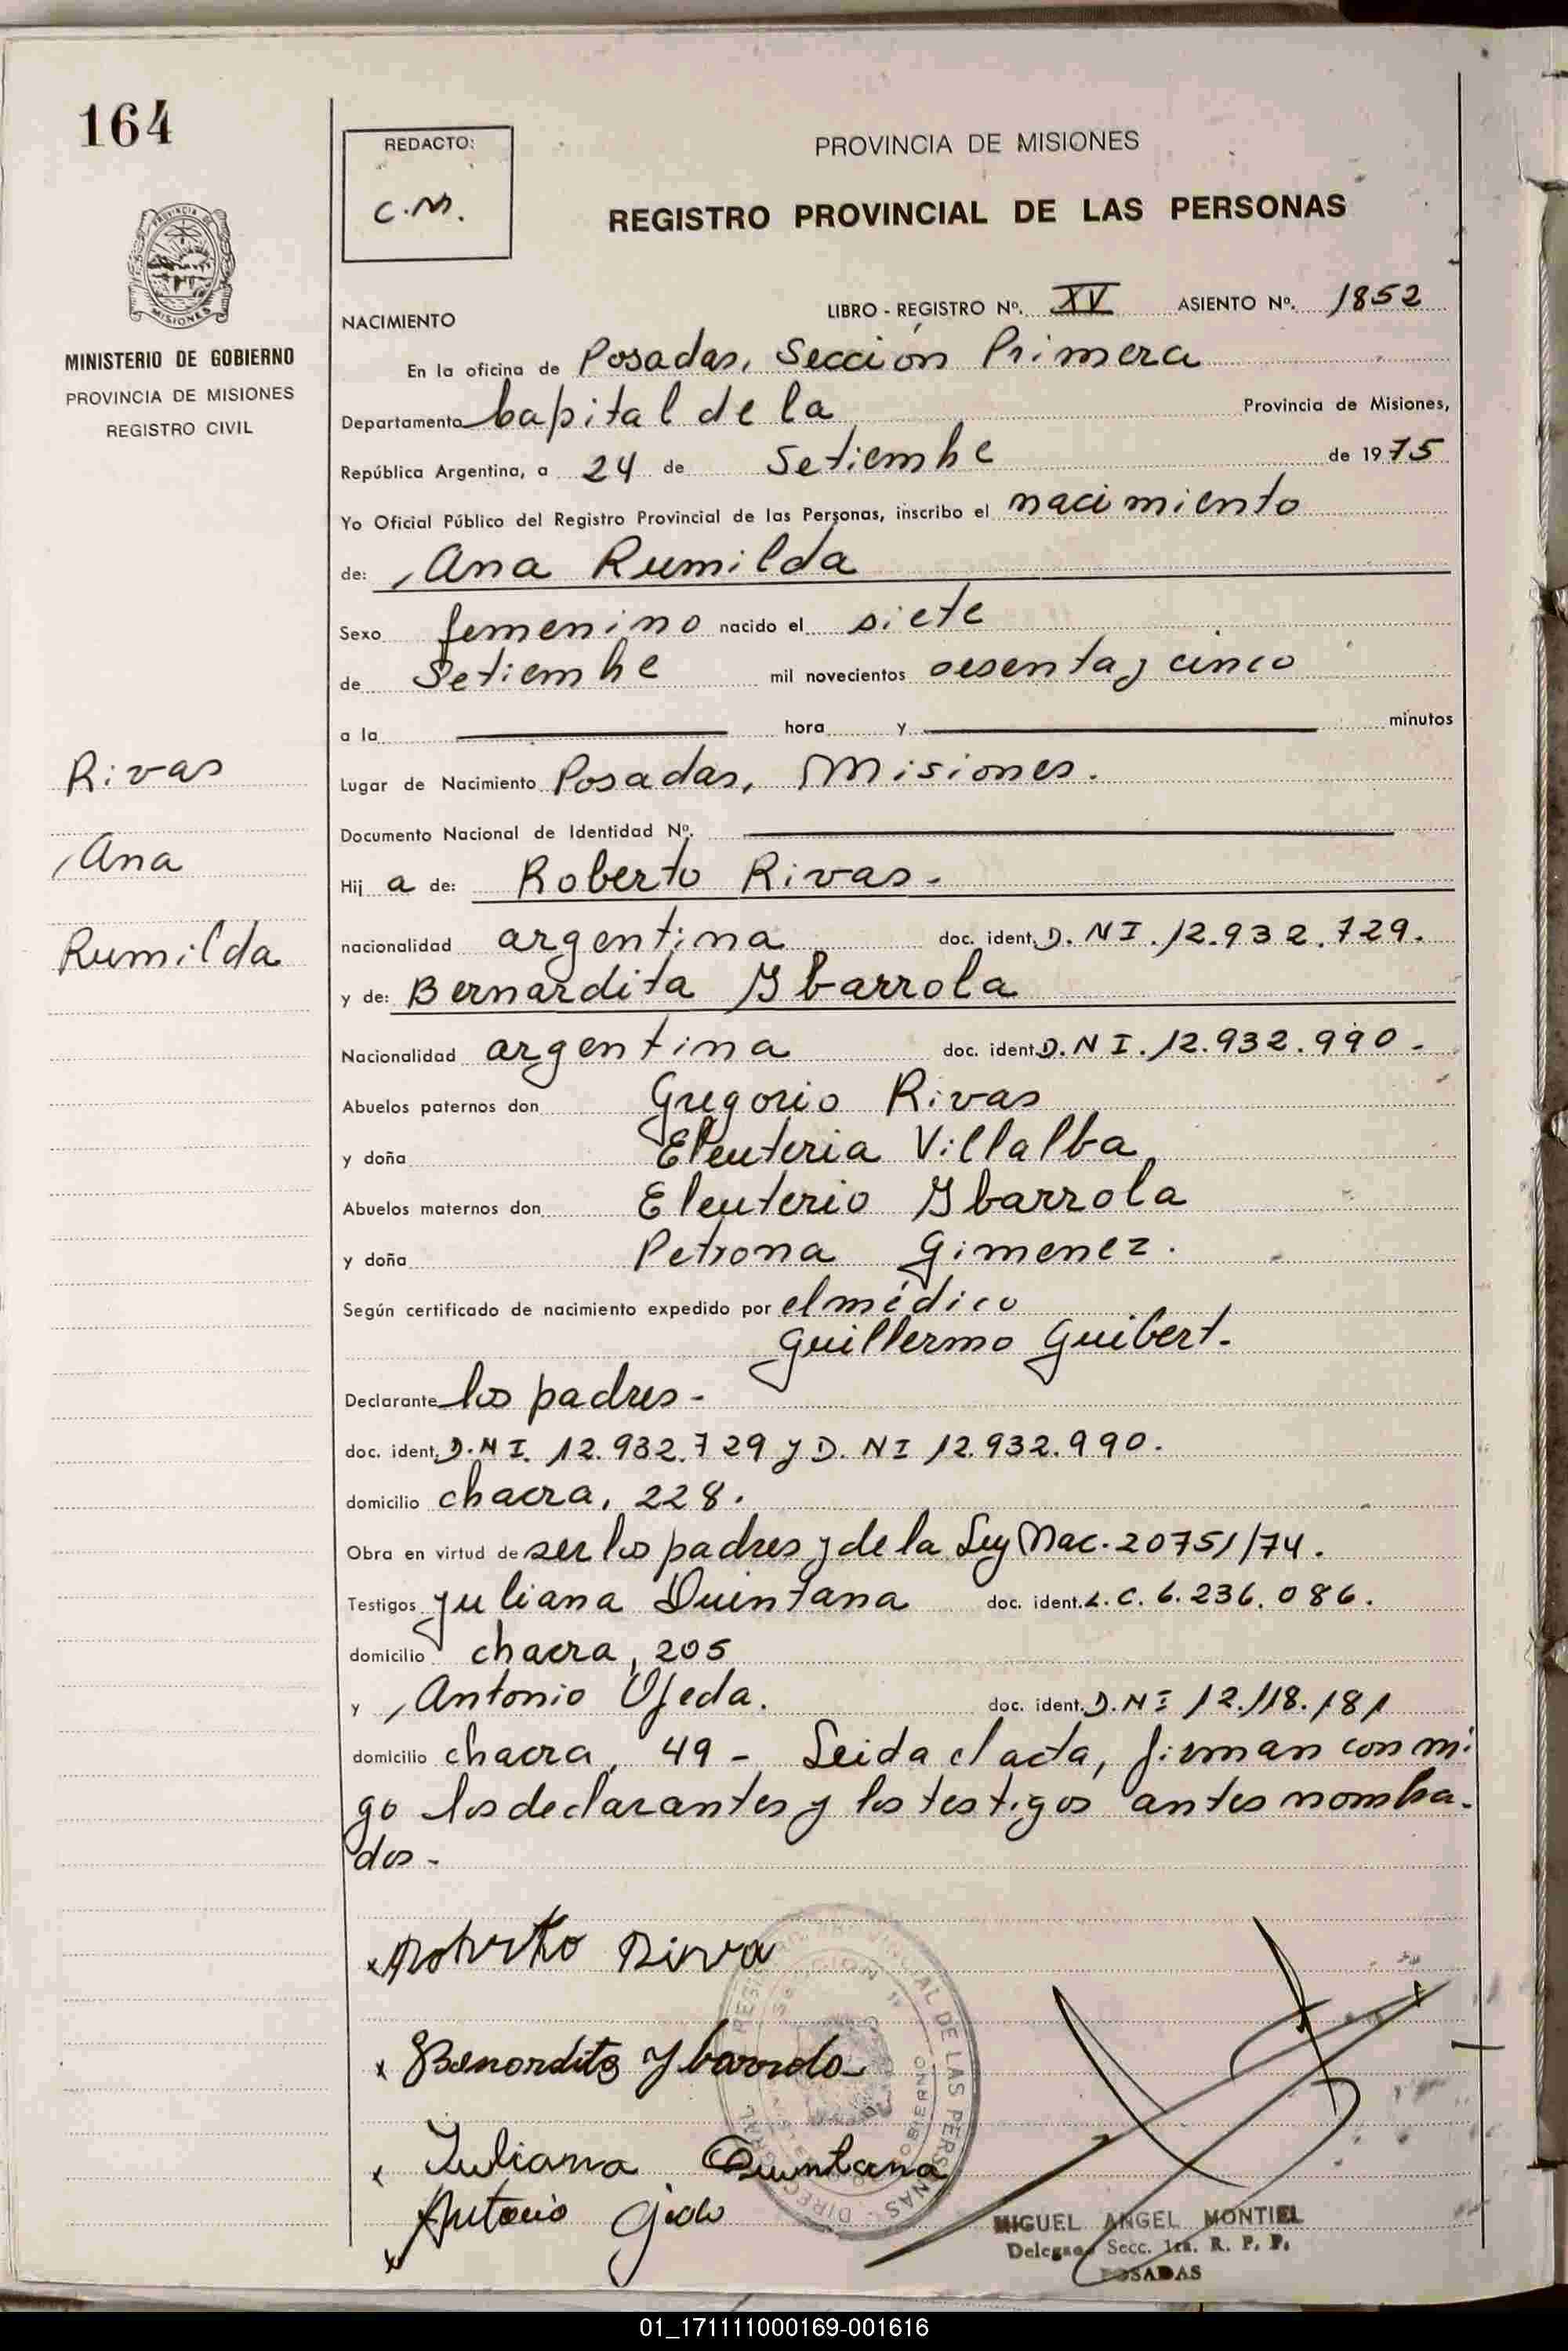 164
REDACTO:
C.M.
PROVINCIA DE MISIONES
REGISTRO PROVINCIAL DE LAS PERSONAS
MISIONES
MINISTERIO DE GOBIERNO
PROVINCIA DE MISIONES
REGISTRO CIVIL
NACIMIENTO
LIBRO - REGISTRO Nº. XV ASIENTO Nº. 1852
En la oficina de Posadas, Sección Primera
Departamento Capital de la Provincia de Misiones,
República Argentina, a 24 de Setiembre de 1975
Yo Oficial Público del Registro Provincial de las Personas, inscribo el nacimiento
de: Ana Rumilda
Sexo femenino nacido el siete
de Setiembre mil novecientos sesenta y cinco
a la hora y minutos
Rivas
Lugar de Nacimiento Posadas, Misiones.
Documento Nacional de Identidad Nº.
Ana
Hij a de: Roberto Rivas.
Rumilda
nacionalidad argentina doc. ident. D.NI. 12.932.729.
y de: Bernardita Ybarrola
Nacionalidad argentina doc. ident. D.NI. 12.932.990.
Abuelos paternos don Gregorio Rivas
y doña Eleuteria Villalba
Abuelos maternos don Eleuterio Ybarrola
y doña Petrona Gimenez.
Según certificado de nacimiento expedido por el médico
Guillermo Guibert.
Declarante los padres -
doc. ident. D.NI. 12.932.729 y D.NI 12.932.990.
domicilio chacra, 228.
Obra en virtud de ser los padres y de la Ley Nac. 20751/74.
Testigos Juliana Quintana doc. ident. L.C. 6.236.086.
domicilio chacra, 205
y Antonio Ojeda. doc. ident. D.NI 12.118.181
domicilio chacra, 49 - Leida el acta, firman conmi
go los declarantes y los testigos antes nombra-
dos -
x Roberto Riva
x Bernardita Ybarrola
x Juliana Quintana
x Antonio
MIGUEL ANGEL MONTIEL
Delegado Secc. 1ra. R. P. P.
POSADAS
01_171111000169-001616